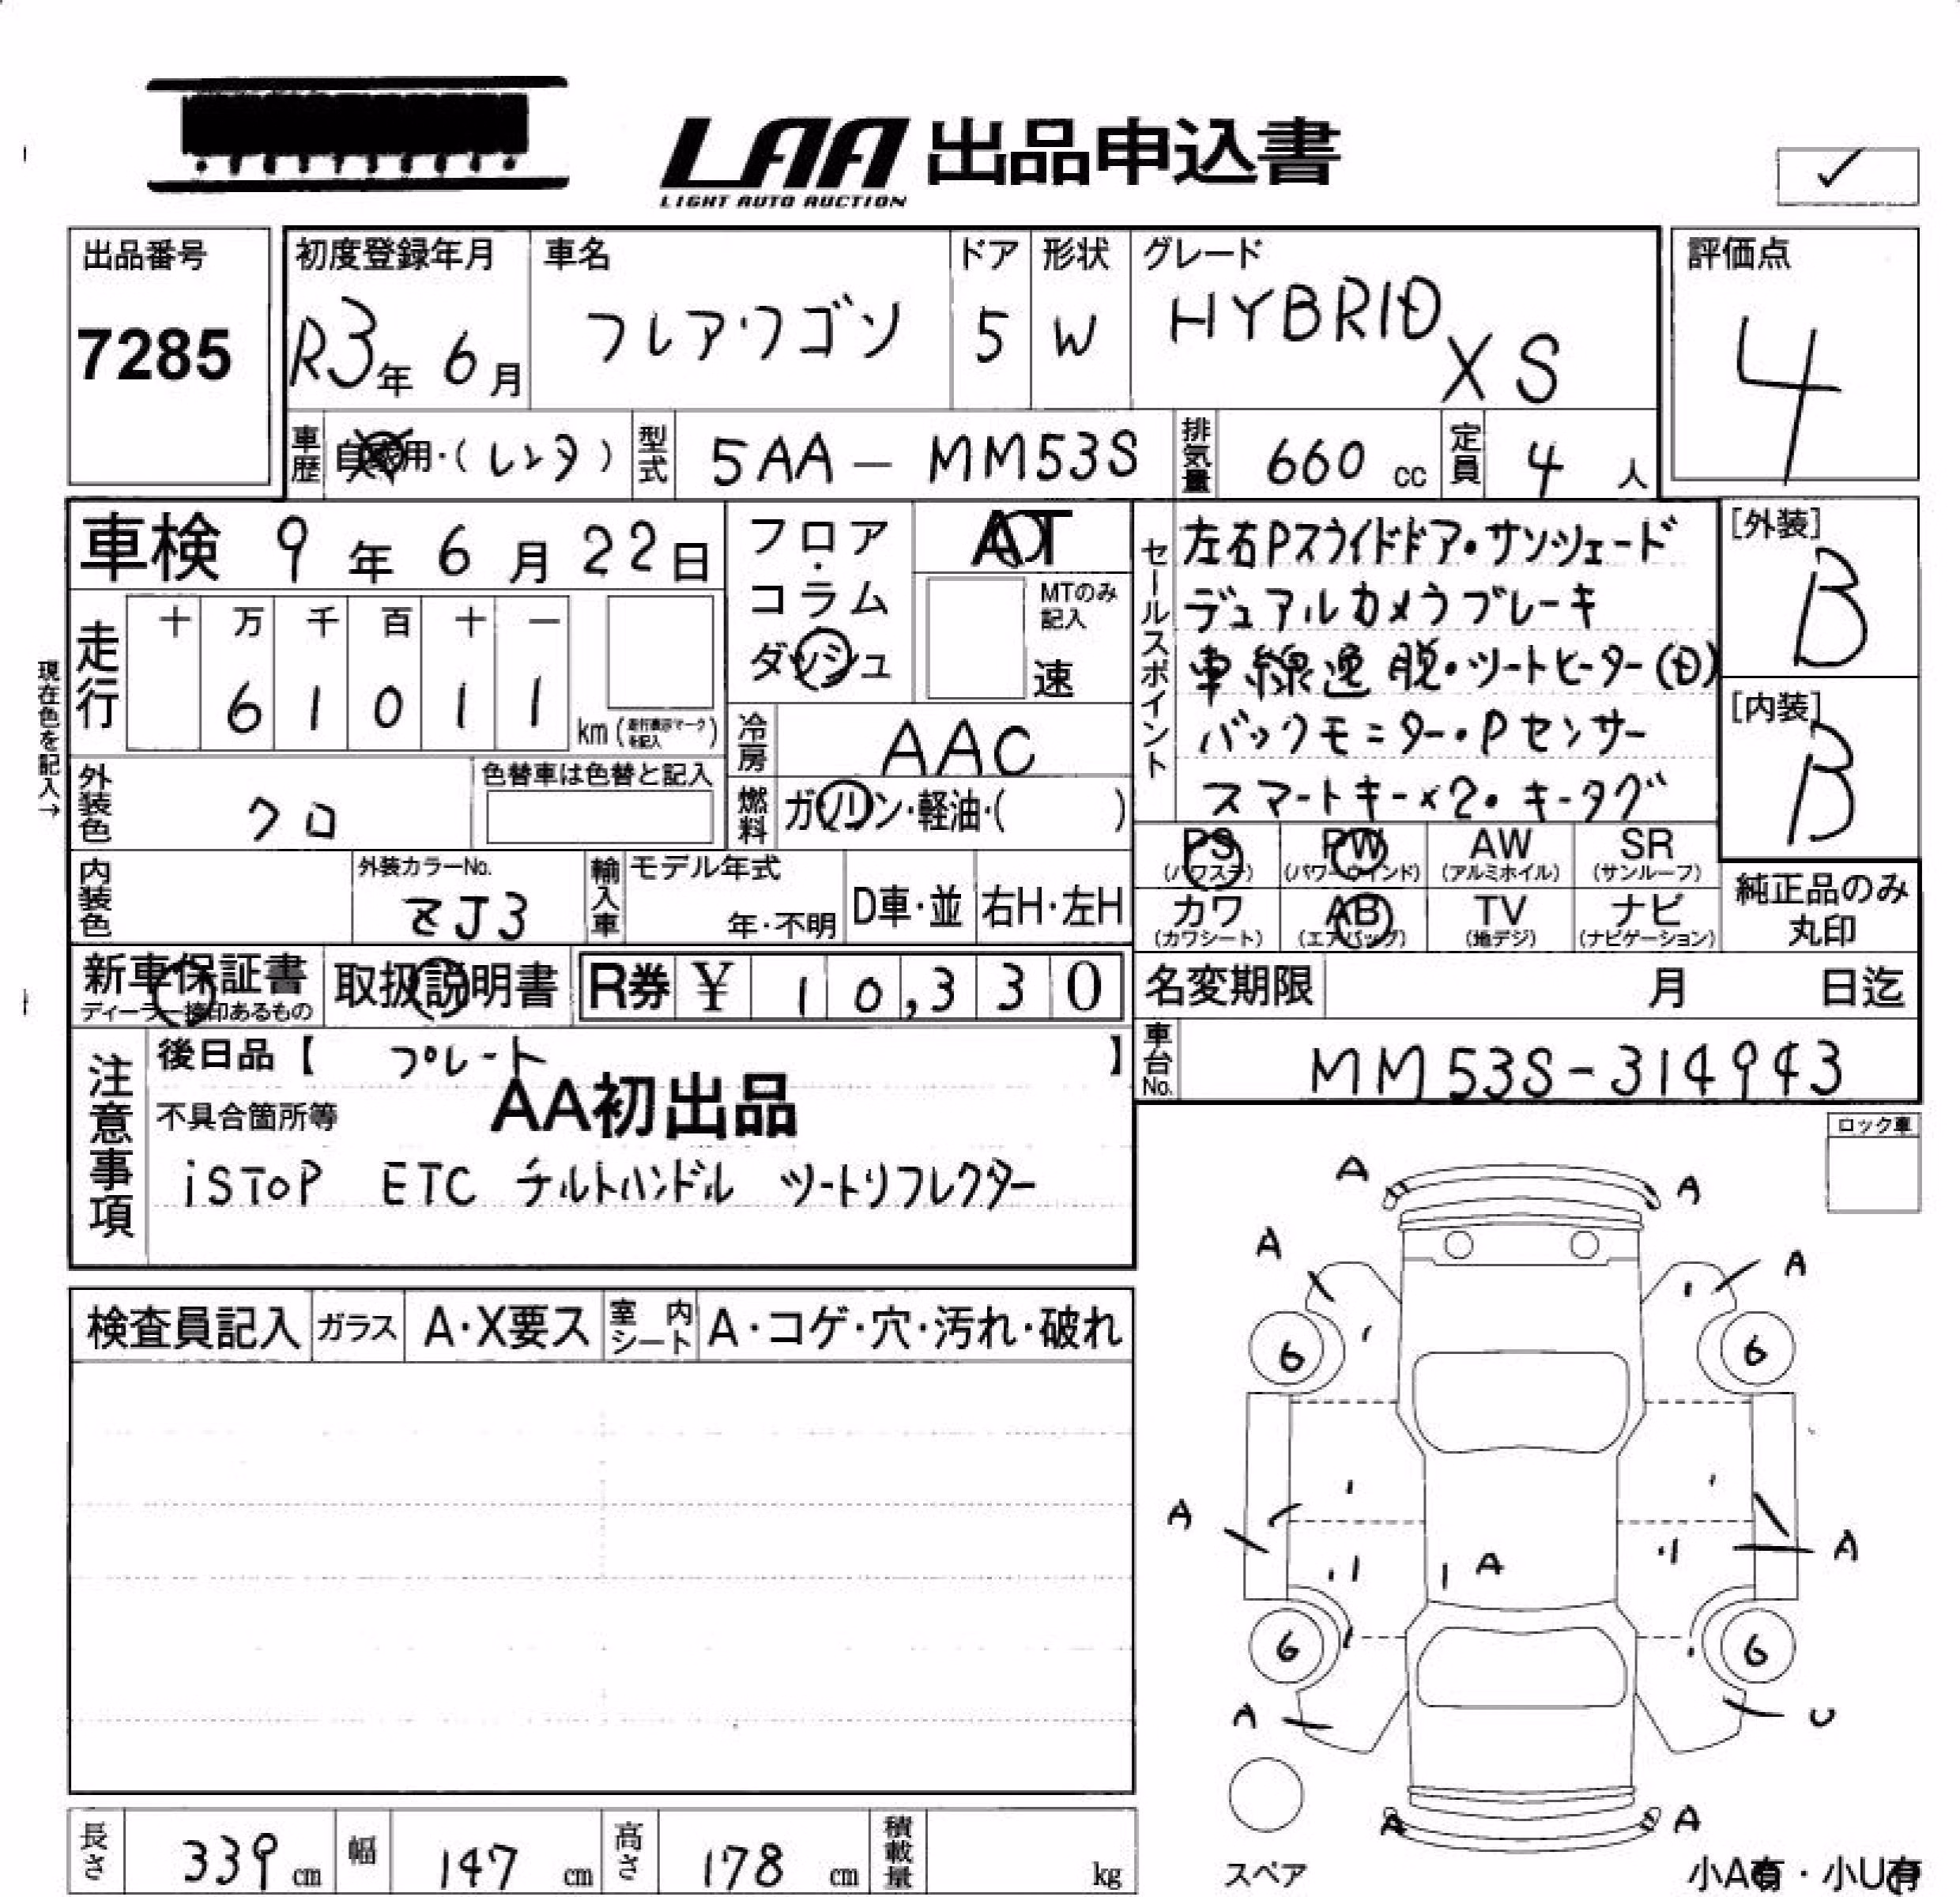 LAA 出品申込書
LIGHT AUTO AUCTION
✓
出品番号
7285
初度登録年月
R3年 6月
車名
フレアワゴン
ドア
5
形状
W
グレード
HYBRID XS
評価点
4
車歴
自家用・(レンタ)
型式
5AA-MM53S
排気量
660 cc
定員
4 人
車検 9年 6月 22日
フロア・
コラム
ダッシュ
AT
MTのみ
記入
速
セールスポイント
左右Pスライドドア・サンシェード
デュアルカメラブレーキ
車線逸脱・ツートヒーター(日)
バックモニター・Pセンサー
スマートキー×2・キータグ
[外装]
B
[内装]
B
現在色を記入→
走行
十 万 千 百 十 一
6 1 0 1 1
km(走行表示マークを記入)
冷房
AAC
外装色
クロ
色替車は色替と記入
燃料
ガソリン・軽油・( )
PS
(パワステ)
PW
(パワーウインド)
AW
(アルミホイル)
SR
(サンルーフ)
カワ
(カワシート)
AB
(エアバッグ)
TV
(地デジ)
ナビ
(ナビゲーション)
純正品のみ
丸印
内装色
外装カラーNo.
ZJ3
輸入車
モデル年式
年・不明
D車・並
右H・左H
新車保証書
ディーラー捺印あるもの
取扱説明書
R券 ¥ 10,330
名変期限
月 日迄
車台No.
MM53S-314943
注意事項
後日品【 プレート 】
AA初出品
不具合箇所等
iSToP ETC チルトハンドル ツートリフレクター
ロック車
検査員記入
ガラス
A・X要ス
室内シート
A・コゲ・穴・汚れ・破れ
A A
A A
6 6
A A A
6 6
A U
A A
スペア
小A有・小U有
長さ 339 cm
幅 147 cm
高さ 178 cm
積載量 kg